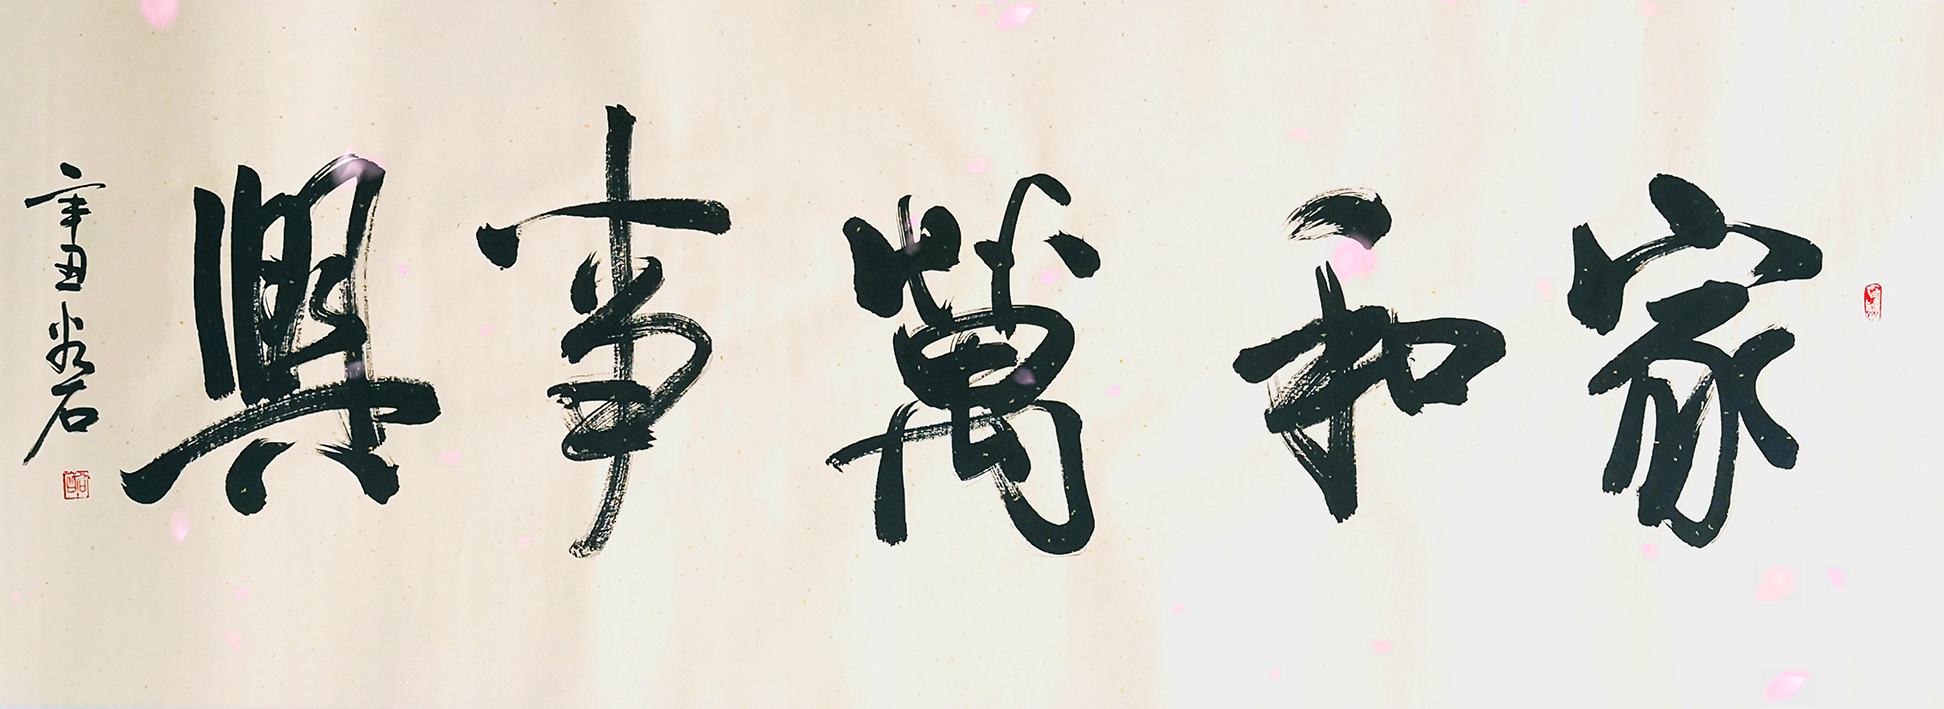 家和萬事興
辛丑 石